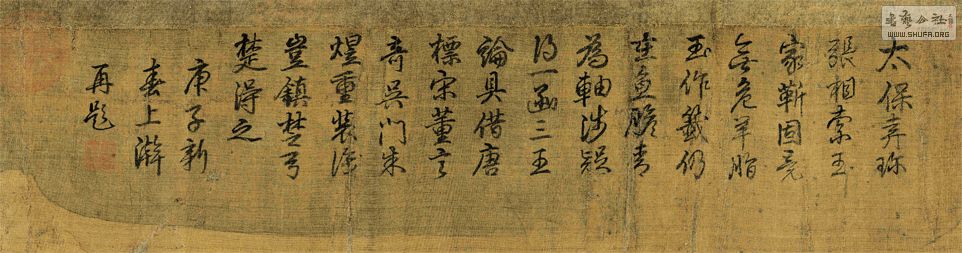 太保弆珍
張相索玉
家靳固竟
無危羊脂
玉作籤仍
在魚膽青
為軸涉疑
得一函三王
論具借唐
標宋董言
奇吳門朱
煌重裝潢
豈鎮楚弓
楚得之
庚子新
春上澣
再題
書藝公社
WWW.SHUFA.ORG